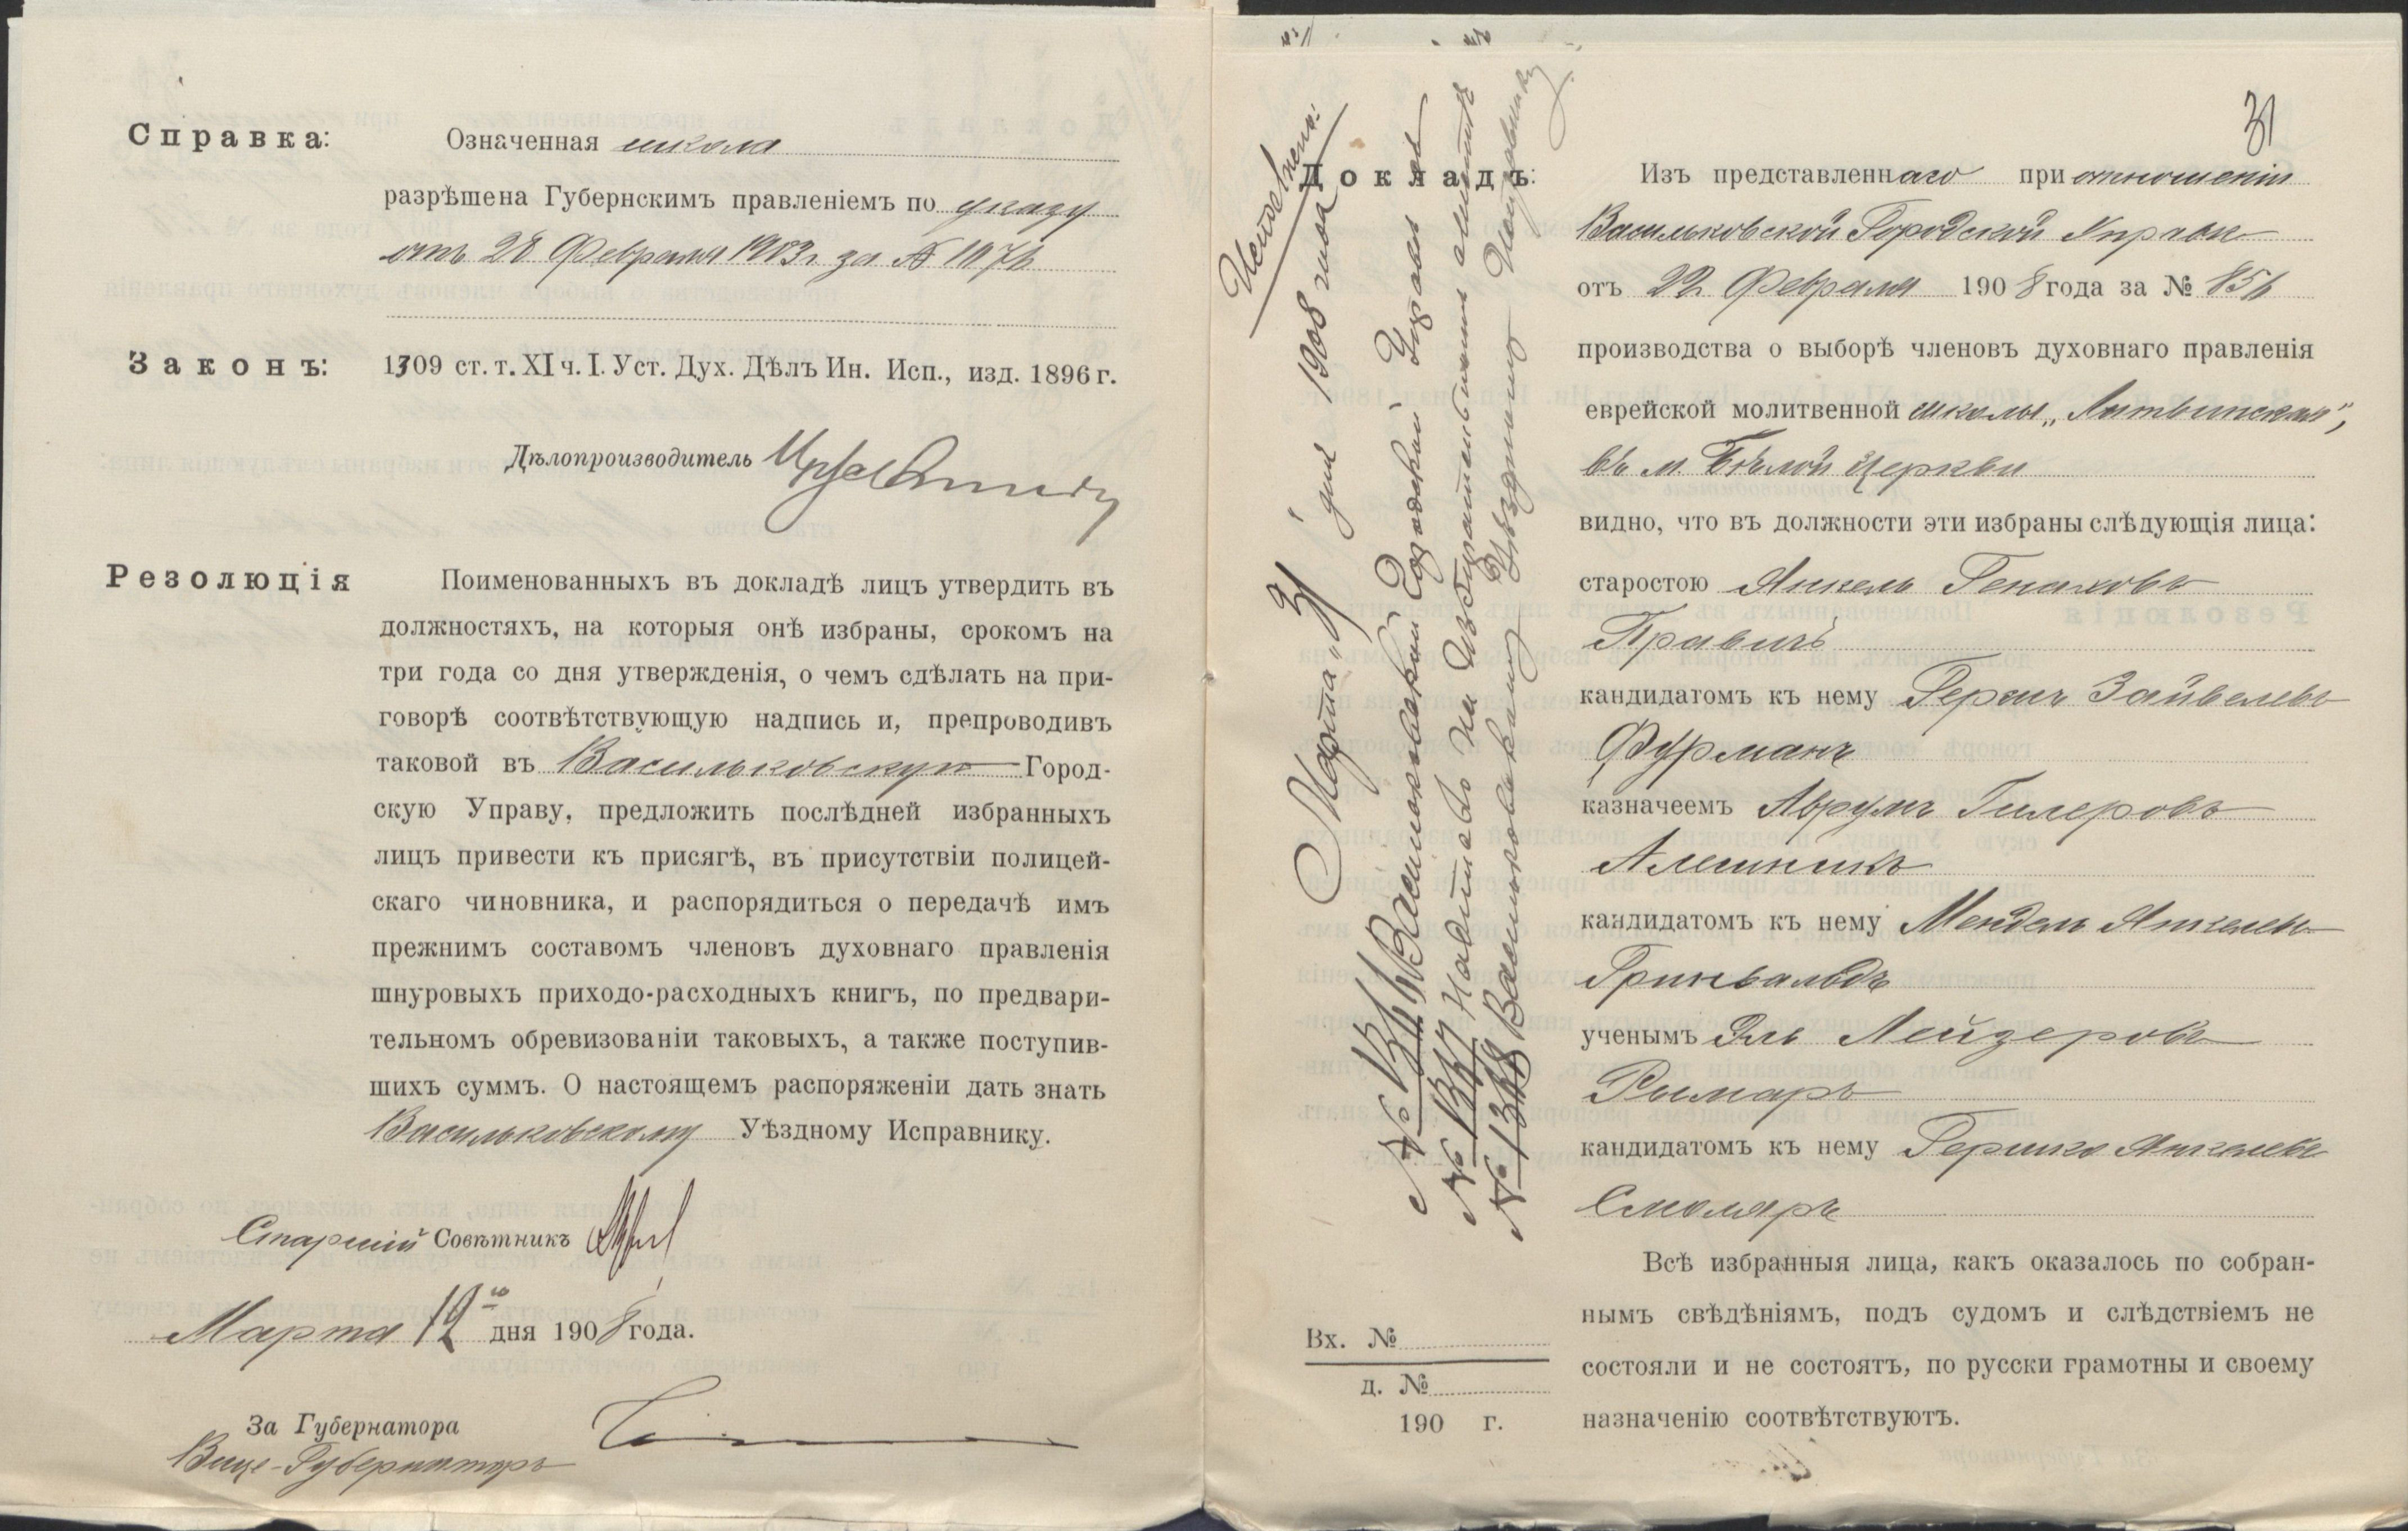 Справка:
Означенная школа
разрѣшена Губернскимъ правленіемъ по указу
отъ 28 Февраля 1903 г. за №
Законъ:
1309 ст. т. XI ч. I. Уст. Дух. Дѣлъ Ин. Исп., изд. 1896 г.
Дѣлопроизводитель
Резолюція
Поименованныхъ въ докладѣ лицъ утвердить въ
должностяхъ, на которыя онѣ избраны, срокомъ на
три года со дня утвержденія, о чемъ сдѣлать на при-
говорѣ соотвѣтствующую надпись и, препроводивъ
таковой въ Васильковскую Город-
скую Управу, предложить послѣдней избранныхъ
лицъ привести къ присягѣ, въ присутствіи полицей-
скаго чиновника, и распорядиться о передачѣ имъ
прежнимъ составомъ членовъ духовнаго правленія
шнуровыхъ приходо-расходныхъ книгъ, по предвари-
тельномъ обревизованіи таковыхъ, а также поступив-
шихъ суммъ. О настоящемъ распоряженіи дать знать
Васильковскому Уѣздному Исправнику.
Старшій Совѣтникъ
Марта 12го дня 1908 года.
За Губернатора
Вице-Губернаторъ
31
Докладъ:
Изъ представленнаго при отношеніи
Васильковской Городской Управы
отъ 22 Февраля 1908 года за № 856
производства о выборѣ членовъ духовнаго правленія
еврейской молитвенной школы „Литвинская",
въ м. Бѣлой Церкви
видно, что въ должности эти избраны слѣдующія лица:
старостою Янкель Генаховъ
Правичъ
кандидатомъ къ нему Гершъ Зайвелевъ
Фурманъ
казначеемъ Аврумъ Гилеровъ
Алешникъ
кандидатомъ къ нему Мендель Янкелевъ
Гринвальдъ
ученымъ Эль Лейзеровъ
Рымаръ
кандидатомъ къ нему Гершко Янкелевъ
Смоляръ
Всѣ избранныя лица, какъ оказалось по собран-
нымъ свѣдѣніямъ, подъ судомъ и слѣдствіемъ не
состояли и не состоятъ, по русски грамотны и своему
назначенію соотвѣтствуютъ.
Исполнено:
Марта „31" дня 1908 года
№ Васильковской Городской Управѣ съ
№ 1347 Надписью на избирательномъ листѣ
№ 1348 Васильковскому Уѣздному Исправнику
Вх. №
д. №
190 г.